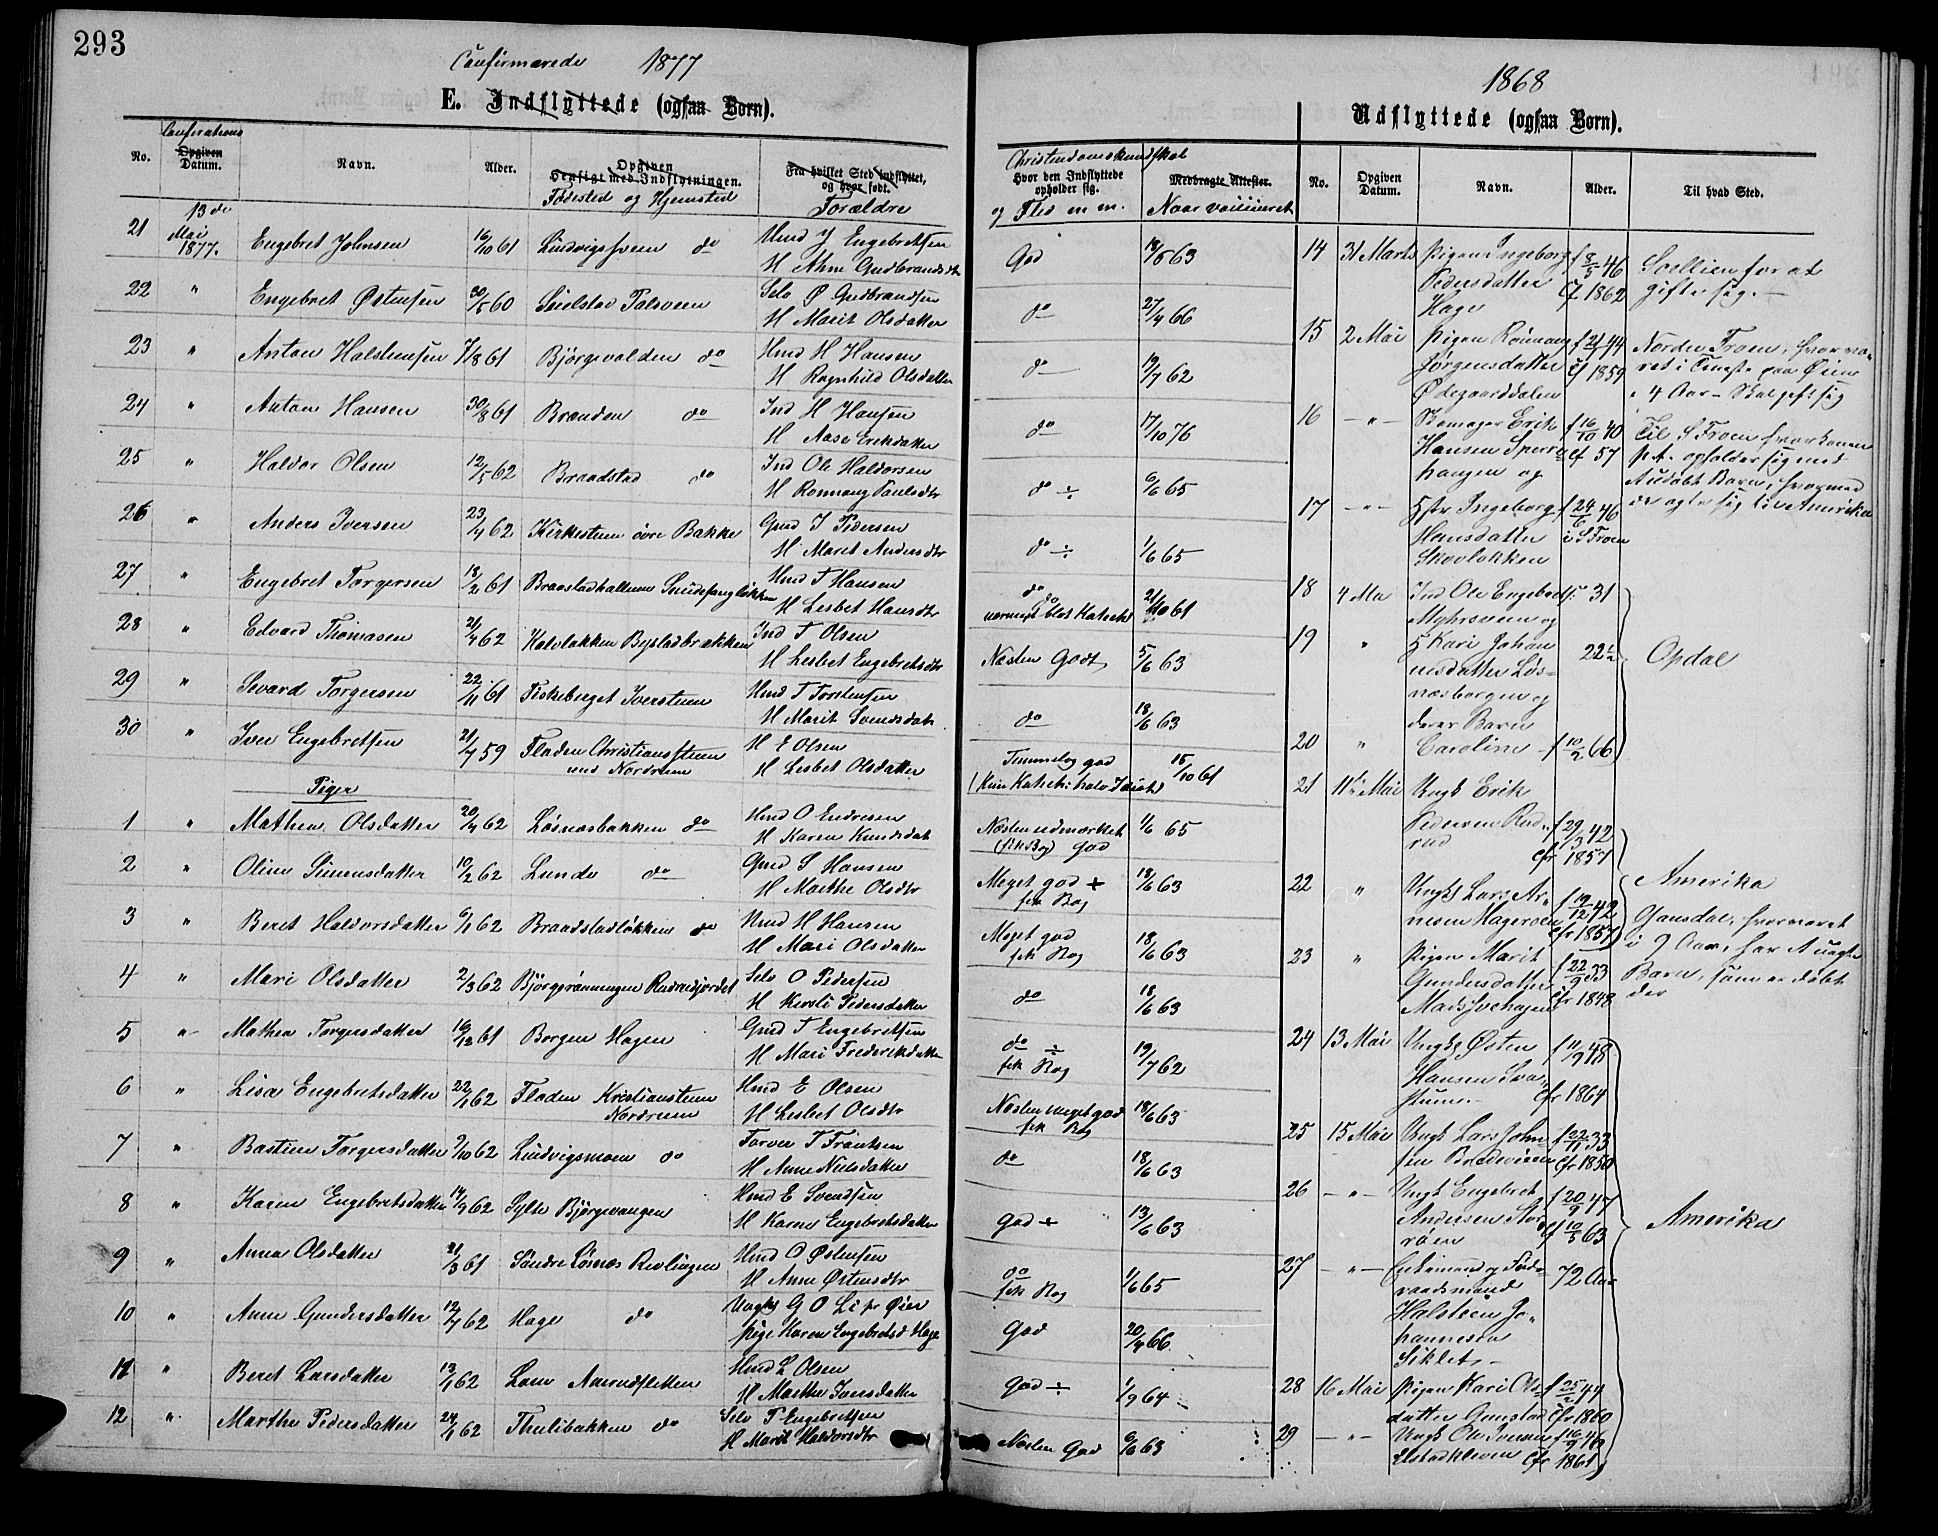 293
Confirmerede 1877
E. Indflyttede (ogsaa Børn).
No.
Confirations
Opgiven
Datum.
Navn.
Alder.
Opgiven
Henligt med Indflytningen.
Fødested og Hjemsted
Fra hvilket Sted indflyttet,
og hvor født.
Forældre
Christendomskundskab
Hvor den Indflyttede
opholder sig.
og Flid m m.
Medbragte Attester.
Naar vaccineret
21 13de Mai 1877. Engebret Johnsen 16/10 61 Lindvigsveen do Hmd J Engebretsen
H Ahne Gudbrandsdtr God 18/6 63
22 " Engebret Østensen 30/5 60 Sielstad Palsveen Selv Ø Gudbrandsen
H Marit Olsdatter do 27/9 66
23 " Anton Halstensen 7/8 61 Bjørgevolden do Hmd H Hansen
H Ragnhild Olsdatter do 19/7 62
24 " Anton Hansen 30/8 61 Brænden do Ind H Hansen
H Aase Eriksdatter do 17/10 76
25 " Haldor Olsen 12/5 62 Braadstad do Ind Ole Haldorsen
H Rønnaug Paulsdtr do ÷ 6/6 65
26 " Anders Iversen 23/4 62 Kirkestuen øvre Bakke Gmd I Pedersen
H Maret Andersdtr do ÷ 1/6 65
27 " Engebret Torgersen 18/2 61 Hmd T Hansen
H Lisbet Hansdtr do 61
28 " Edvard Thomasen 21/4 62 Kalvløkken Ind T Olsen
H Lisbet Engebretsdtr Næsten Godt 5/6 63
29 " Sevard Torgersen 22/11 61 Fiskeberget Iverstuen Hmd T Torstensen
H Marit Svendsdatr do 18/6 63
30 " Iver Engebretsen 21/7 59 Fladen Christiansstuen
ned Nordrum H E Olsen
H Lisbet Olsdatter Temmelig god 15/10 61
Piger
1 " Mathea Olsdatter 20/4 62 Løsnæsbakken do Hmd O Endresen
H Karen Knudsdat Næsten udmærket
(fik Bog) god 1/6 65
2 " Oline Simensdatter 10/2 62 Lunde do Gmd S Hansen
H Marthe Olsdtr Meget god +
fik Bog 18/6 63
3 " Beret Haldorsdatter 6/1 62 Braadstadløkken do Hmd H Hansen
H Mari Olsdatter Meget god
fik Bog 18/6 63
4 " Mari Olsdatter 2/3 62 Selv O Pedersen
H Kersti Pedersdatter do 18/6 63
5 " Mathea Torgersdatter 16/12 61 Borgen Hagen Gmd T Engebretsen
H Mari Frederiksdatter do ÷
fik Bog 19/7 62
6 " Lisa Engebretsdatter 22/1 62 Fladen Kristianstuen
Nordrum Hmd E Olsen
H Lisbet Olsdtr Næsten meget god
fik Bog 18/6 63
7 " Bastien Torgersdatter 9/10 62 Lindvigsmoen do Farver T Frantsen
H Anne Nielsdatter do 18/6 63
8 " Karen Engebretsdatter 14/9 62 Sylte Bjørgevangen Hmd E Svendsen
H Karen Engebretsdatter God + 13/6 63
9 " Anna Olsdatter 21/3 61 Søndre Løsnæs Revlingen Hmd O Østensen
H Anne Østensdtr do
fik Bog 1/6 65
10 " Anne Gundersdatter 12/4 62 Hage do Ungkl G O Li pr Øier
pige Karen Engebretsd Hage God 20/9 66
11 " Beret Larsdatter 13/1 62 Hmd L Olsen
H Marthe Iversdatter God ÷ 1/9 64
12 " Marthe Pedersdatter 24/1 62 Thulibakken do Selv P Engebretsen
H Marit Haldorsdtr Næsten God 6/6 63
1868
Udflyttede (ogsaa Børn).
No. Opgiven Datum. Navn. Alder. Til hvad Sted.
14 31 Marts Pigen Ingeborg
Pedersdatter
Hage f 8/5 46
Cf 1862 for at
gifte sig.
15 2 Mai Pigen Rønnaug
Jørgensdatter
Ødegaarddalen f 21/7 44
Cf 1859 Nordre Froen, hvor væ-
ret i Tjeneste paa Øien
i 4 Aar - Skal gifte sig
16 - " - Skomager Erik
Hansen Sperre-
haugen og f 16/10 40
cf 57 Til S Froen hvor konen
p.t. opholder sig med
1 udøbt Barn, hvormed
de agte sig til Amerika
17 - " - Hstr Ingeborg
Hansdatter
Skovløkken f 24/6 46
i S Froen
18 4 Ma Ind Ole Engebrets
Myhrsveen og 31
19 " H Kari Johan
nesdatter Løs-
næsborgen og 22½
deres Barn
20 " Caroline f 10/2 66
Opdal
21 11te Mai Ungk Erik
Pedersen Rud-
rud f 29/3 42
Cfr 1857
22 " Ungk Lars Ar-
nesen Hageroen f 19/12 42
Cfr 1857
Amerika
23 " Pigen Marit
Gundersdatter f 22/9 33
Cfr 1848 Gausdal, hvor været
i 9 Aar, har 1 uægte
Barn, som er døbt
der
24 13 Mai Ungk Østen
Hansen Sva-
stuen. f 11/9 48
Cfr 1864
25 15 Mai Ungk Lars John-
sen Bredeveien f 22/11 33
Cfr 1850
26 - " - Ungk Engebret
Andersen Stor
røen f 20/9 47
cf 10/5 63
27 - " - Enkemand og Føde-
raadsmand
Halsteen Jo-
hannesen
Siklet 72 Aar
28 16 Mai Pigen Kari Ols-
datter Gunstad f 25/2 44
Cfr 1860
29 - " - Ungk Ole Iversen
Elstadkleven f 16/9 46
Cfr 1861
Amerika